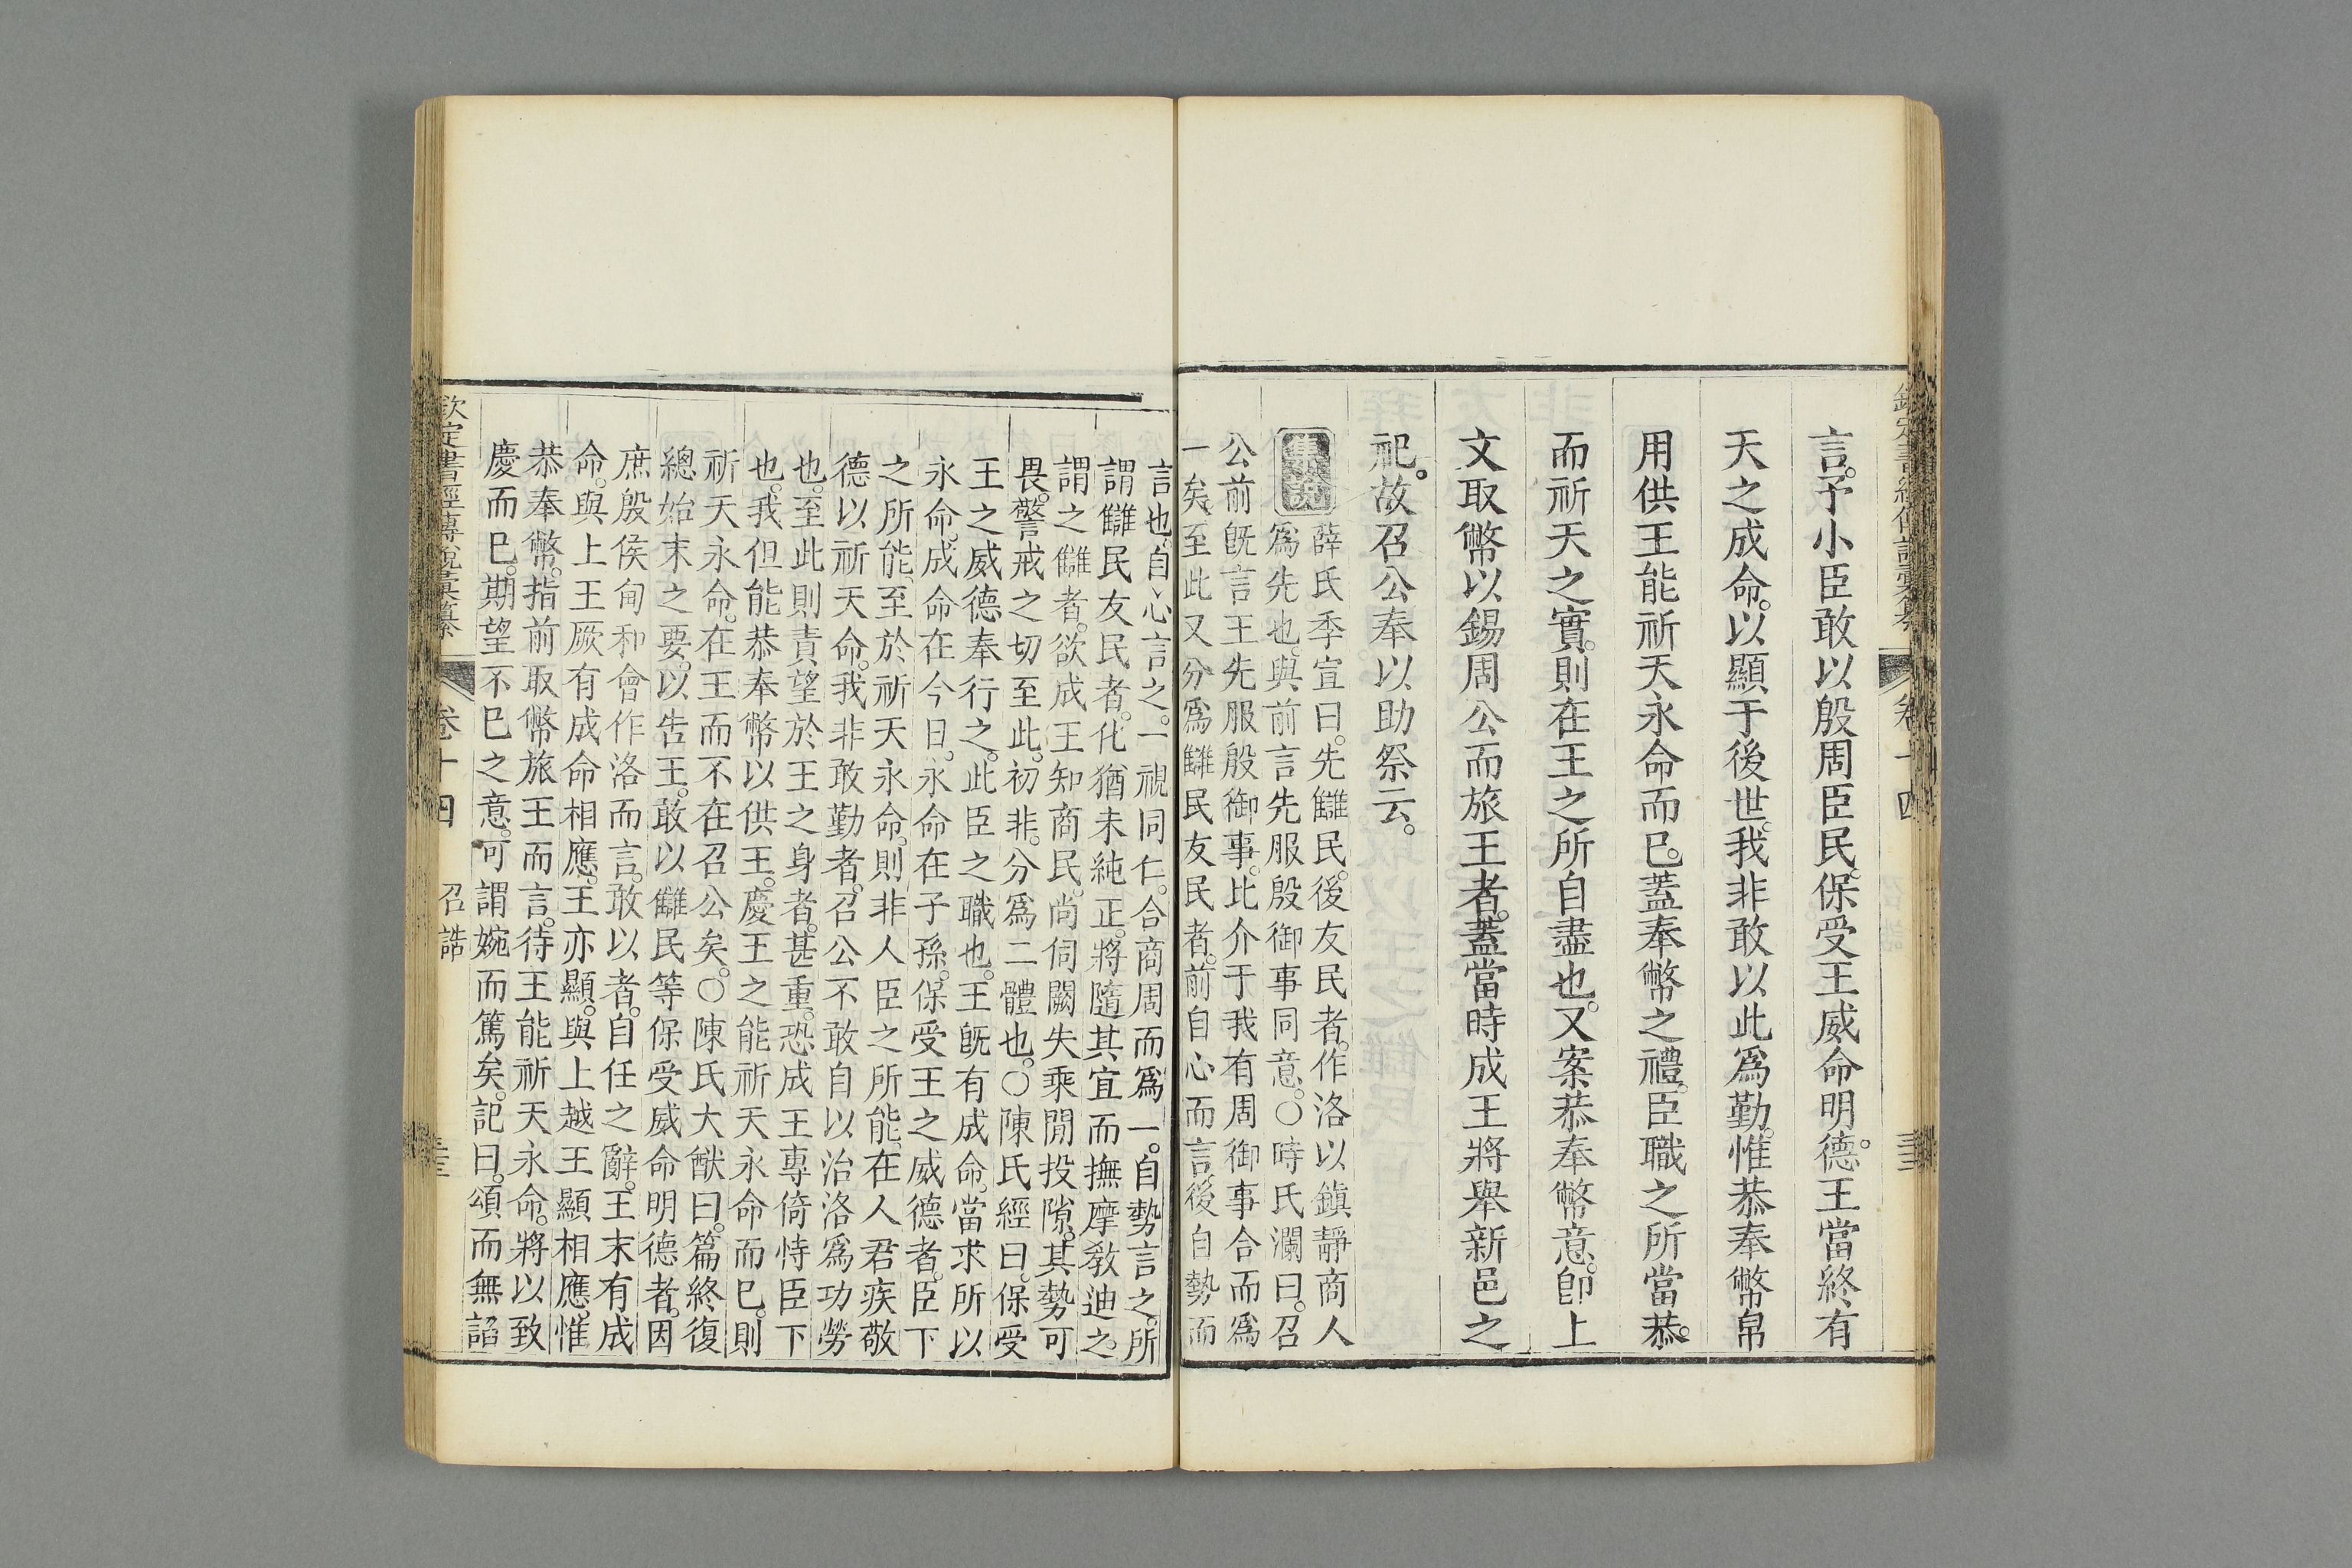 言。予小臣敢以殷周臣民。保受王威命明德。王當終有
天之成命。以顯于後世。我非敢以此爲勤。惟恭奉幣帛
用供王能祈天永命而已。蓋奉幣之禮。臣職之所當恭。
而祈天之實。則在王之所自盡也。又案恭奉幣意。卽上
文取幣以錫周公而旅王者。蓋當時成王將舉新邑之
祀。故召公奉以助祭云。
集說
薛氏季宣曰。先讎民。後友民者。作洛以鎭靜商人
爲先也。與前言先服殷御事同意。○時氏瀾曰。召
公前旣言王先服殷御事。比介于我有周御事合而爲
一矣。至此又分爲讎民友民者。前自心而言。後自勢而
言也。自心言之。一視同仁。合商周而爲一。自勢言之。所
謂讎民友民者。化猶未純正。將隨其宜而撫摩敎迪之。
謂之讎者。欲成王知商民。尚伺闕失乘閒投隙。其勢可
畏。警戒之切至此。初非。分爲二體也。○陳氏經曰。保受
王之威德奉行之。此臣之職也。王旣有成命。當求所以
永命。成命在今日。永命在子孫。保受王之威德者。臣下
之所能。至於祈天永命。則非人臣之所能。在人君疾敬
德以祈天命。我非敢勤者。召公不敢自以治洛爲功勞
也。至此則責望於王之身者。甚重。恐成王專倚恃臣下
也。我但能恭奉幣以供王。慶王之能祈天永命而已。則
祈天永命。在王而不在召公矣。○陳氏大猷曰。篇終復
總始末之要。以告王。敢以讎民等保受威命明德者。因
庶殷侯甸和會作洛而言。敢以者。自任之辭。王末有成
命。與上王厥有成命相應。王亦顯。與上越王顯相應。惟
恭奉幣。指前取幣旅王而言。待王能祈天永命。將以致
慶而已。期望不已之意。可謂婉而篤矣。記曰。頌而無諂
欽定書經傳說彙纂 卷十四 召誥